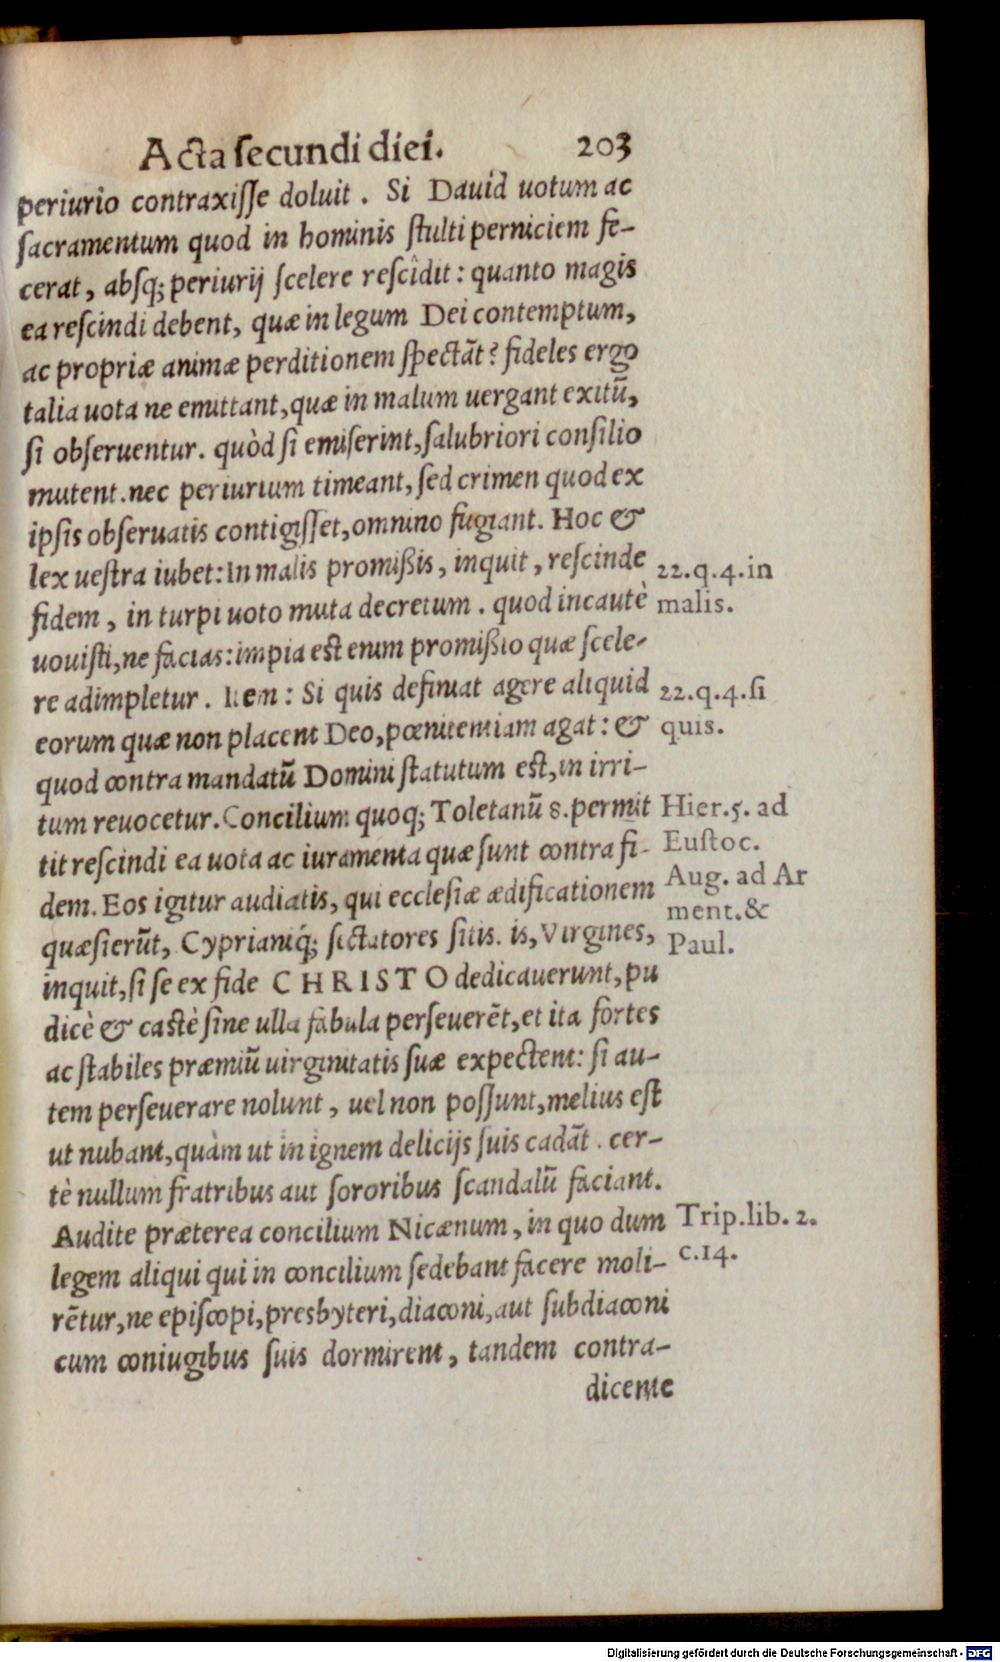 Acta secundi diei. 203
periurio contraxisse doluit. Si Dauid uotum ac
sacramentum quod in hominis stulti perniciem fe-
cerat, absq; periurij scelere rescidit: quanto magis
ea rescindi debent, quæ in legum Dei contemptum,
ac propriæ animæ perditionem spectāt? fideles ergo
talia uota ne emittant, quæ in malum uergant exitū,
si obseruentur. quòd si emiserint, salubriori consilio
mutent. nec periurium timeant, sed crimen quod ex
ipsis obseruatis contigisset, omnino fugiant. Hoc &
lex uestra iubet: In malis promißis, inquit, rescinde
22.q.4.in
fidem, in turpi uoto muta decretum. quod incautè
malis.
uouisti, ne facias: impia est enim promißio quæ scele-
re adimpletur. Item: Si quis definiat agere aliquid
22.q.4.si
eorum quæ non placent Deo, pœnitentiam agat: &
quis.
quod contra mandatū Domini statutum est, in irri-
tum reuocetur. Concilium quoq; Toletanū 8. permit
Hier.5. ad
tit rescindi ea uota ac iuramenta quæ sunt contra fi-
Eustoc.
dem. Eos igitur audiatis, qui ecclesiæ ædificationem
Aug. ad Ar
ment.&
quæsierūt, Cyprianiq́; sectatores sitis. is, Virgines,
Paul.
inquit, si se ex fide CHRISTO dedicauerunt, pu
dicè & castè sine ulla fabula perseuerēt, et ita fortes
ac stabiles præmiū uirginitatis suæ expectent: si au-
tem perseuerare nolunt, uel non possunt, melius est
ut nubant, quàm ut in ignem delicijs suis cadāt. cer-
tè nullum fratribus aut sororibus scandalū faciant.
Audite præterea concilium Nicænum, in quo dum
Trip.lib. 2.
legem aliqui qui in concilium sedebant facere moli-
c.14.
rētur, ne episcopi, presbyteri, diaconi, aut subdiaconi
cum coniugibus suis dormirent, tandem contra-
dicente
Digitalisierung gefördert durch die Deutsche Forschungsgemeinschaft - DFG